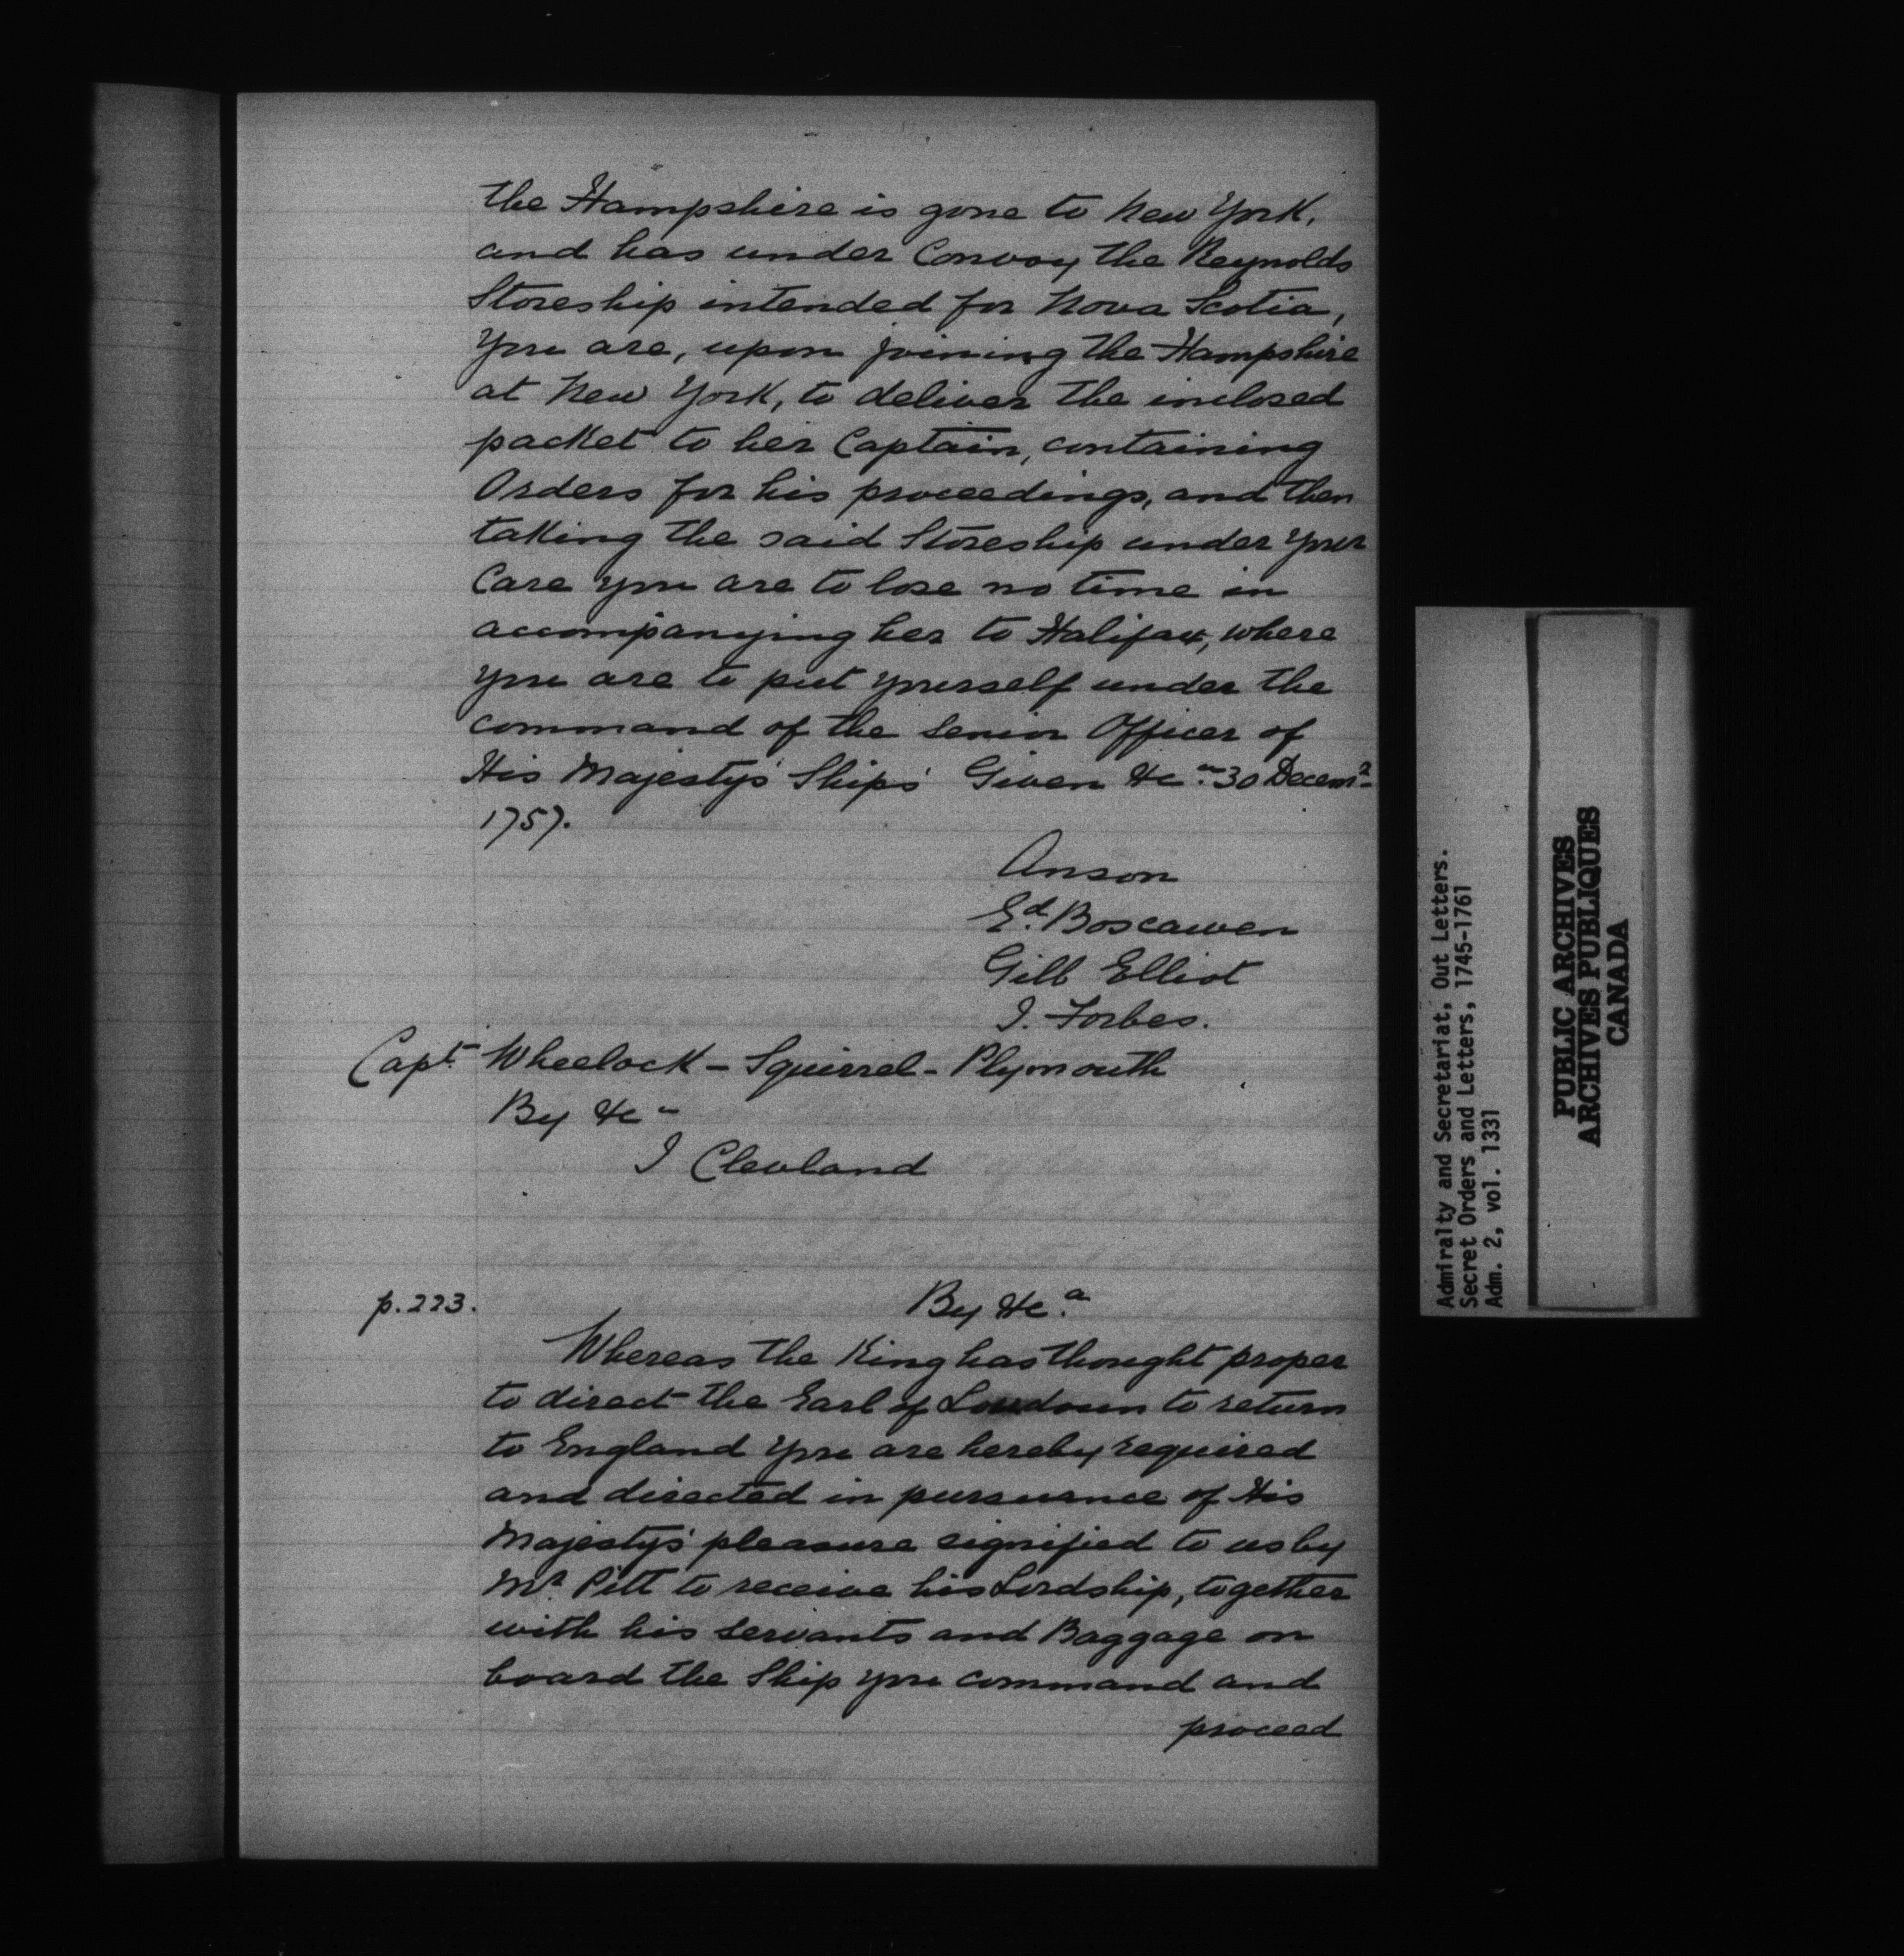 the Hampshire is gone to New York,
and has under Convoy the Reynolds
Storeship intended for Nova Scotia,
You are, upon joining the Hampshire
at New York, to deliver the inclosed
packet to her Captain, containing
Orders for his proceedings, and then
taking the said Storeship under your
Care you are to lose no time in
accompanying her to Halifax, where
you are to put yourself under the
command of the Senior Officer of
His Majesty's Ships Given &c.a 30 Decemr
1757.
Anson
Ed. Boscawen
Gill Elliot
J. Forbes.
Capt. Wheelock - Squirrel - Plymouth
By &c a
J Clevland
p. 223.
By &c.a
Whereas the King has thought proper
to direct the Earl of Loudoun to return
to England You are hereby required
and directed in pursuance of His
Majesty's pleasure signified to us by
Mr. Pitt to receive his Lordship, together
with his servants and Baggage on
board the Ship you command and
proceed
Admiralty and Secretariat, Out Letters.
Secret Orders and Letters, 1745-1761
Adm. 2, vol. 1331
PUBLIC ARCHIVES
ARCHIVES PUBLIQUES
CANADA